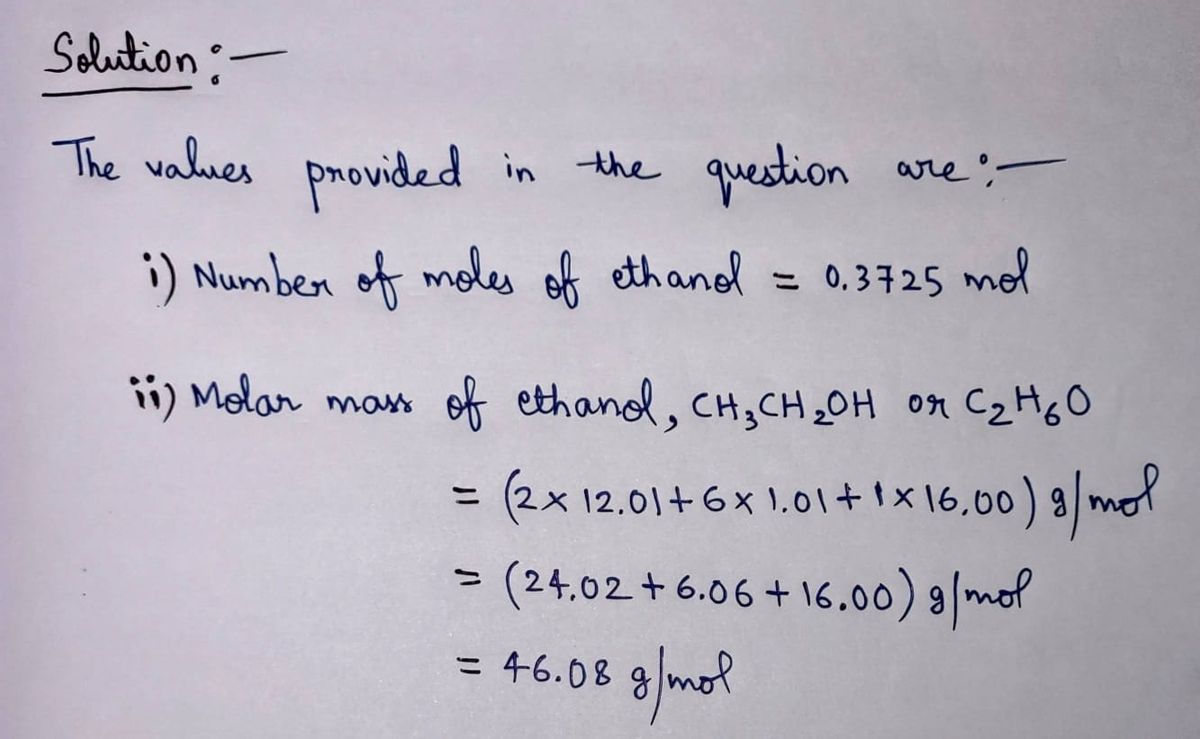 Solution :—
The values provided in the question are :—
i) Number of moles of ethanol = 0.3725 mol
ii) Molar mass of ethanol, CH₃CH₂OH or C₂H₆O
= (2 × 12.01 + 6 × 1.01 + 1 × 16.00) g/mol
= (24.02 + 6.06 + 16.00) g/mol
= 46.08 g/mol